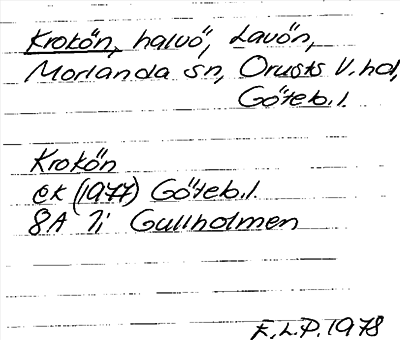 Krokön, halvö, Lavön,
Morlanda sn, Orusts V. hd,
Göteb. l.
Krokön
ek (1977) Göteb. l.
8A 7i Gullholmen
F.L.P. 1978